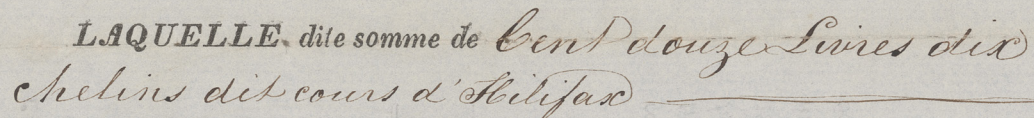 LAQUELLE dite somme de Cent douze Livres dix
chelins dit cours d'Hilifax